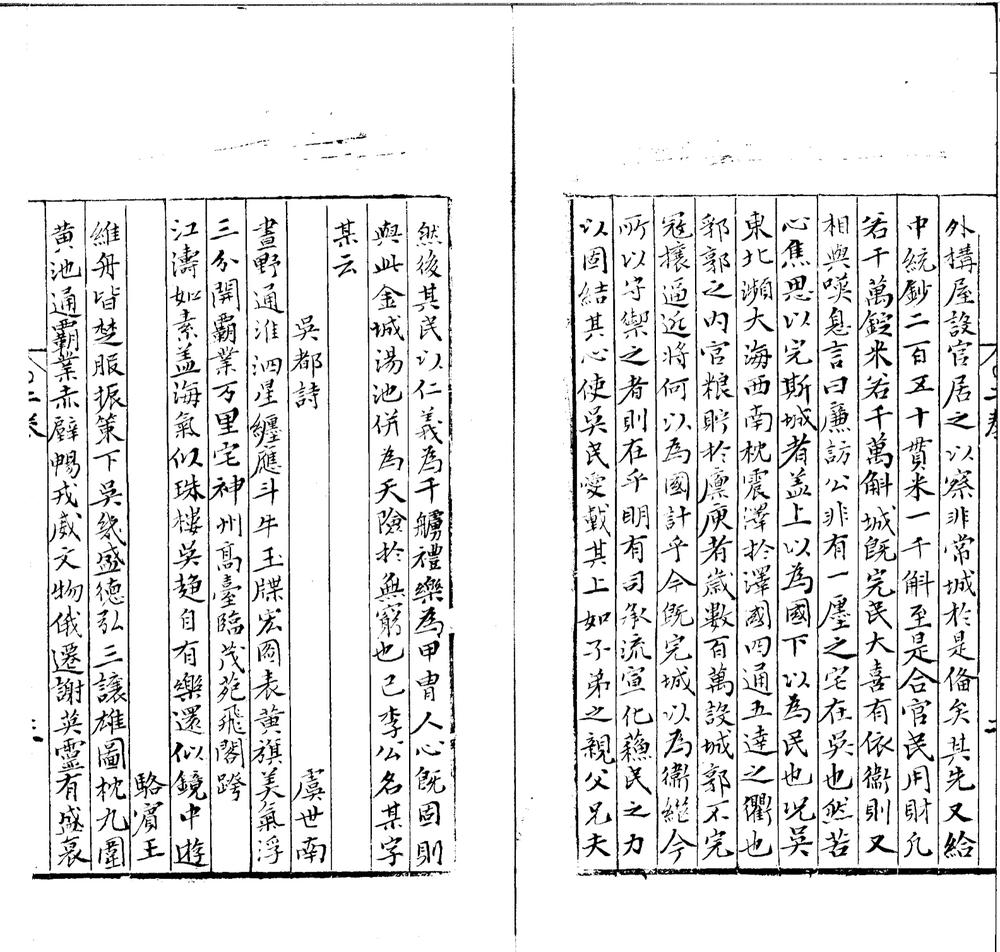 外搆屋設官居之以察非常城於是俻矣其先又給
中統鈔二百五十貫米一千斛至是合官民用財凡
若干萬錠米若干萬斛城既完民大喜有依衞則又
相與嘆息言曰廉訪公非有一廛之宅在吳也然若
心焦思以完斯城者盖上以為國下以為民也况吳
東北瀕大海西南枕震澤於澤國四通五達之衢也
郛郭之内官粮貯扵廪庾者歲數百萬設城郭不完
冦攘逼近將何以為國計乎今既完城以為衞繼今
所以守禦之者則在乎明有司承流宣化蘓民之力
以固結其心使吳民愛戴其上如子弟之親父兄夫
然後其民以仁義為干艣禮樂為甲冑人心既固則
與此金城湯池併為天險扵無窮也已李公名某字
某云
吳都詩
虞世南
畫野通淮泗星纏應斗牛玉牒宏圖表黄旗美氣浮
三分開霸業万里宅神州髙臺臨茂苑飛閣跨
江濤如素盖海氣似珠樓吳趨自有樂還似鏡中遊
駱賔王
維舟皆楚服振策下吳畿盛德弘三讓雄圖枕九圍
黄池通霸業赤壁暢戎威文物俄遷謝英靈有盛衰